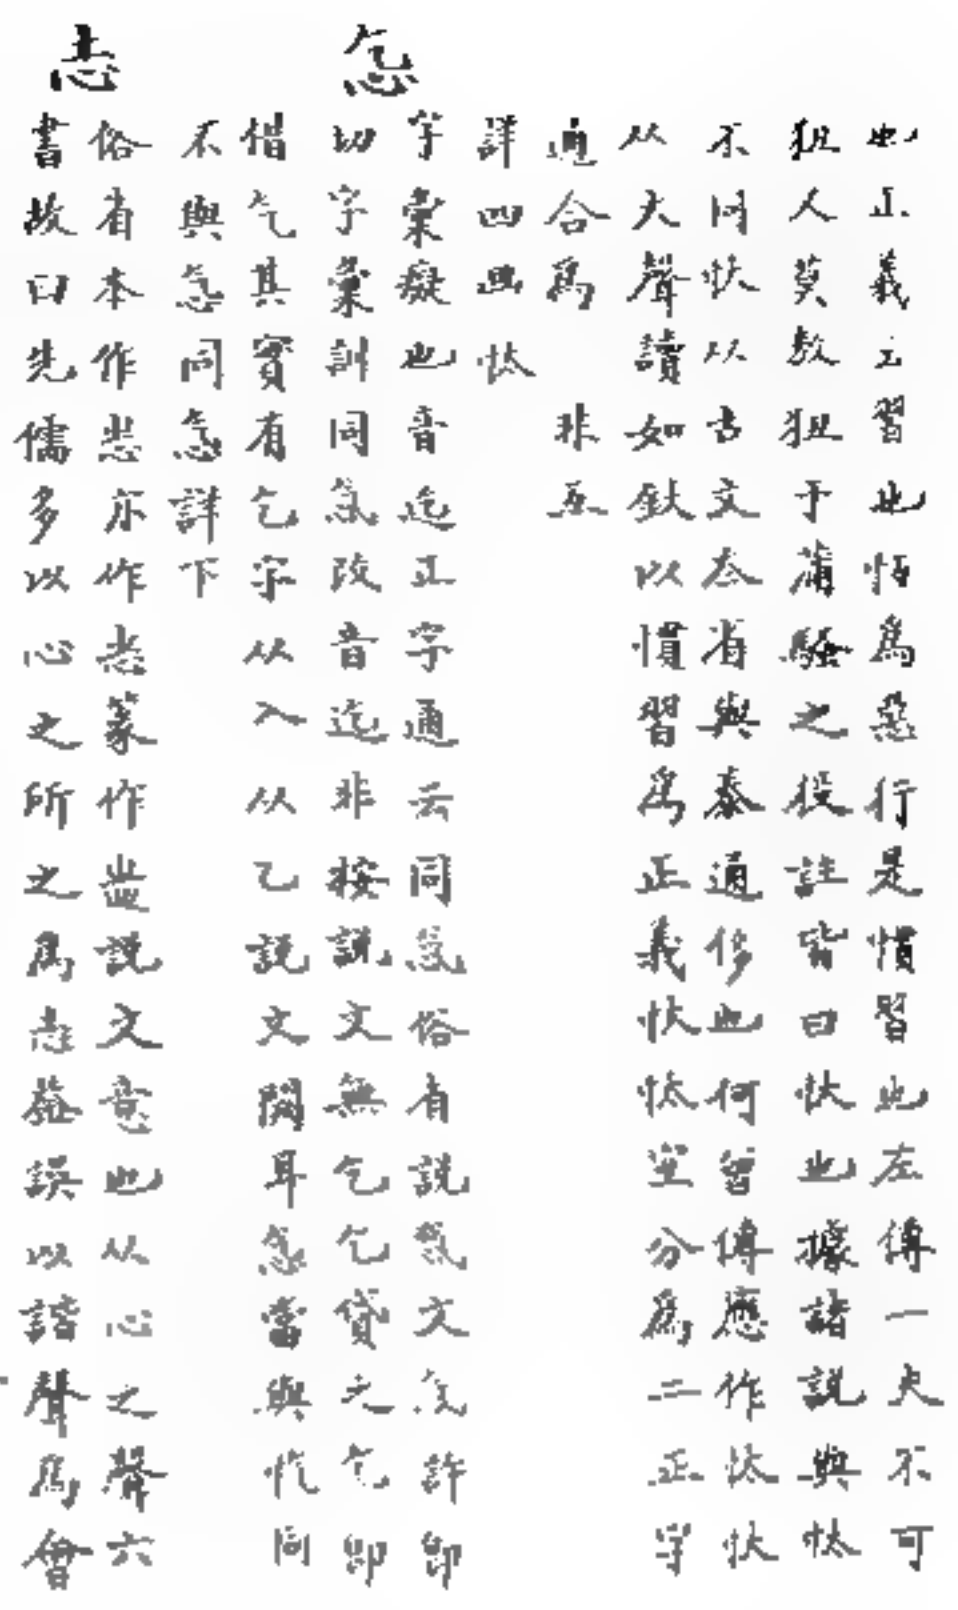 也正義云習也恒爲惡行是慣習也左傳一夫不可
狃人莫敖狃于蒲騷之役註皆曰忕也據諸説與忲
不同忕从古文夳省與泰通侈也何曾傳應作忲忕
从大聲讀如釱以慣習爲正義忕忲宜分爲二正字
通合爲 非互
詳四畫忲
字彙癡也音迄正字通云同忥俗有説文許卽
切字彙訓同忥改音迄非按説文無乞乞貸之乞卽
借气其實有乞字从入从乙説文闕耳當與忔同
不與忥同忥詳下
志
俗省本作亦作志篆作説文意也从心之聲六
書故曰先儒多以心之所之爲志蓋誤以諧聲爲會